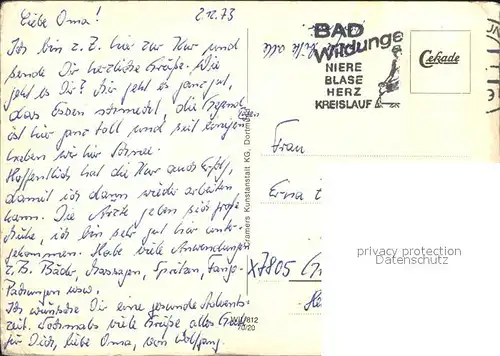 Liebe Oma!
2.12.73
Ich bin z. Z. hier zur Kur und
sende Dir herzliche Grüße. Wie
geht es Dir? Mir geht es ganz gut,
das Essen schmeckt, die Gegend
ist hier ganz toll und seit einigen Tagen
haben wir hier Schnee.
Hoffentlich hat die Kur auch Erfolg,
damit ich dann wieder arbeiten
kann. Die Ärzte geben sich große
Mühe, ich bin sehr gut hier unter-
gekommen. Habe viele Anwendungen
z.B. Bäder, Massagen, Spritzen, Fango-
Packungen usw.
Ich wünsche Dir eine gesunde Advents-
zeit. Nochmals viele Grüße alles Gute
für Dich, liebe Oma, von Wolfgang.
Cramers Kunstanstalt KG, Dortmund
812
70/20
BAD
Wildungen
NIERE
BLASE
HERZ
KREISLAUF
Cekade
Frau
Erna
X7805
privacy protection
Datenschutz